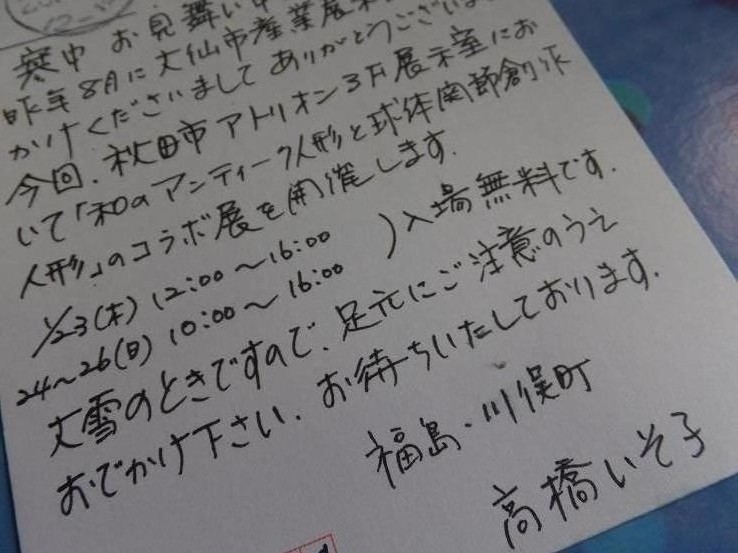 寒中お見舞い申
昨年8月に大仙市産業展示
かけくださいましてありがとうござい
今回、秋田市アトリオン3F展示室にお
いて「和のアンティーク人形と球体関節創作
人形」のコラボ展を開催します.
1/23(木) 12:00～16:00
24～26(日) 10:00～16:00 )入場無料です.
大雪のときですので、足元にご注意のうえ
おでかけ下さい. お待ちいたしております.
福島・川俣町
高橋いそ子